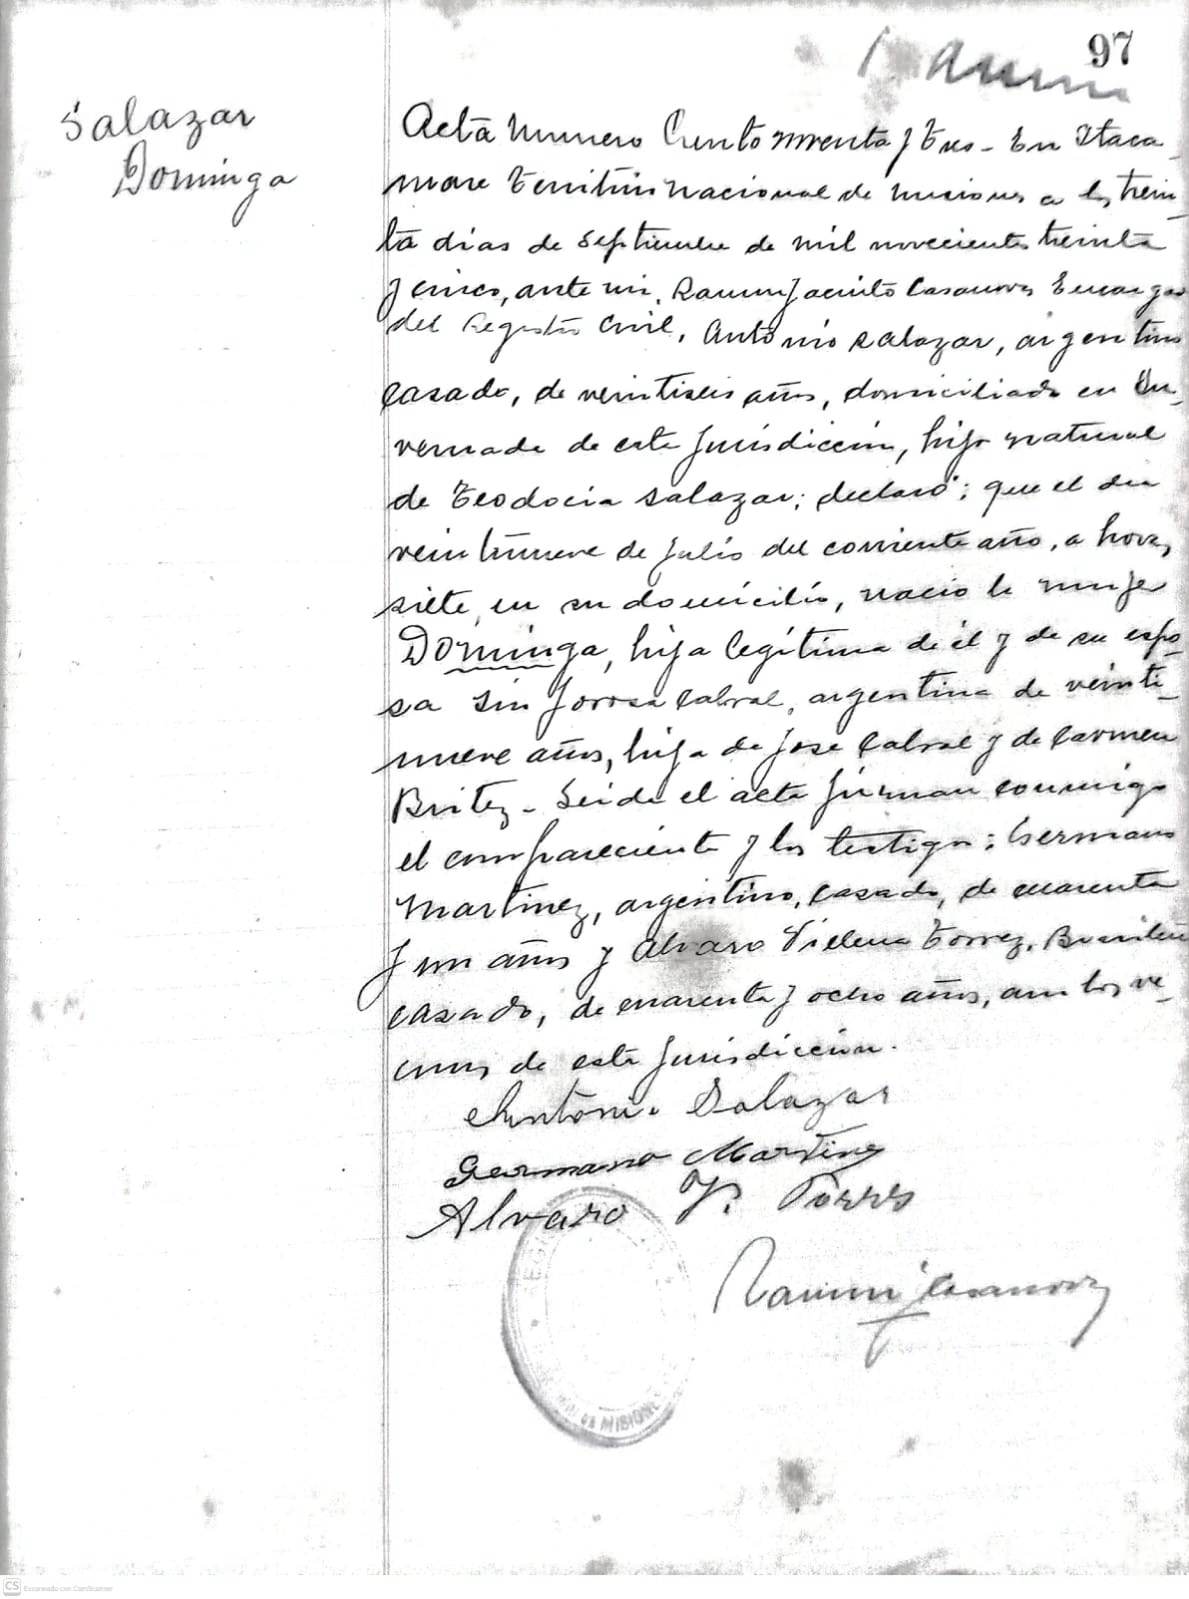 97
Salazar
Dominga
Acta Numero Ciento noventa y tres - En Itaca-
ruare Territorio nacional de misiones a los trein-
ta dias de Septiembre de mil novecientos treinta
y cinco, ante mi, Ramon Jacinto Casanova Encargado
del Registro Civil, Antonio Salazar, argentino
casado, de veintiseis años, domiciliado en In-
vernada de esta Jurisdicción, hijo natural
de Teodocia Salazar; declaró; que el dia
veintinueve de Julio del corriente año, a horas
siete, en su domicilio, nacio la mujer
Dominga, hija legítima de él y de su espo-
sa Sinforosa Cabral, argentina de veinti-
nueve años, hija de Jose Cabral y de Carmen
Britez - Leida el acta firman conmigo
el compareciente y los testigos: Germano
Martinez, argentino, casado, de cuarenta
y un años y Alvaro Torrez, Brasilero
casado, de cuarenta y ocho años, ambos ve-
cinos de esta Jurisdicción.
Antonio Salazar
Germano Martinez
Alvaro V. Torres
Ramon J Casanova
MISIONES
CS Escaneado con CamScanner